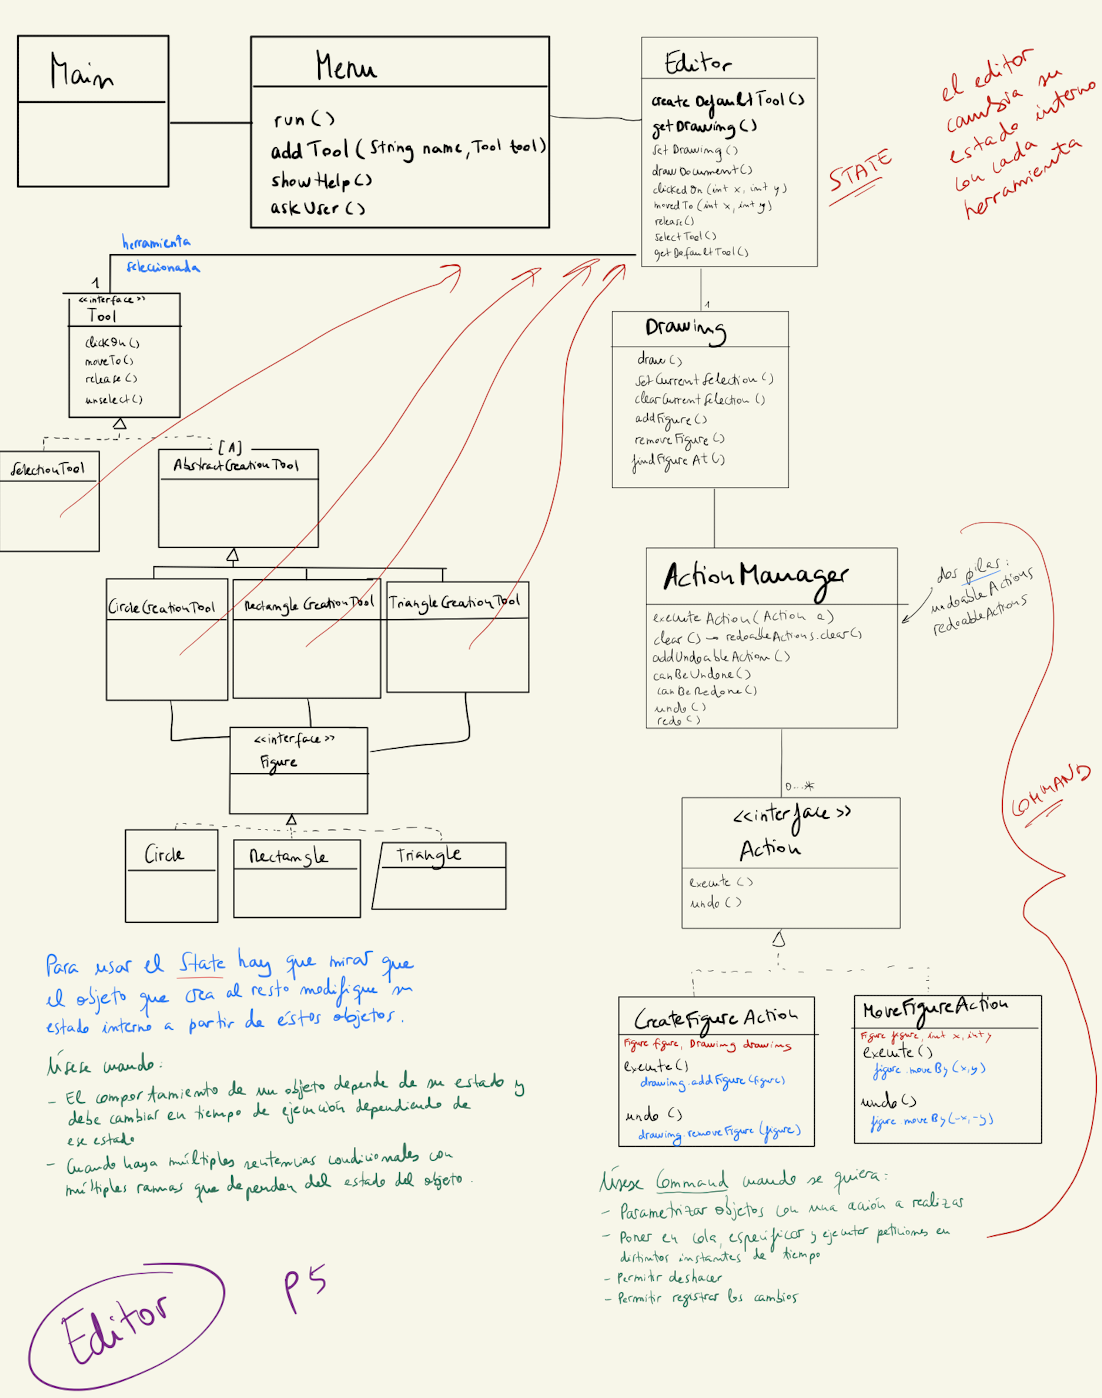 Main
Menu
run()
addTool(String name, Tool tool)
showHelp()
askUser()
Editor
createDefaultTool()
getDrawing()
setDrawing()
drawDocument()
clickedOn(int x, int y)
movedTo(int x, int y)
release()
selectTool()
getDefaultTool()
STATE
el editor
cambia su
estado interno
con cada
herramienta
herramienta
seleccionada
1
<<interface>>
Tool
clickOn()
moveTo()
release()
unselect()
SelectionTool
[A]
AbstractCreationTool
CircleCreationTool
Rectangle CreationTool
TriangleCreationTool
<<interface>>
Figure
Circle
Rectangle
Triangle
1
Drawing
draw()
setCurrentSelection()
clearCurrentSelection()
addFigure()
removeFigure()
findFigureAt()
ActionManager
executeAction(Action a)
clear() → redoableActions.clear()
addUndoableAction()
canBeUndone()
canBeRedone()
undo()
redo()
dos pilas:
undoableActions
redoableActions
COMMAND
0...*
<<interface>>
Action
execute()
undo()
CreateFigureAction
Figure figure, Drawing drawing
execute()
drawing.addFigure(figure)
undo()
drawing.removeFigure(figure)
MoveFigureAction
Figure figure, int x, int y
execute()
figure.moveBy(x,y)
undo()
figure.moveBy(-x,-y)
Para usar el State hay que mirar que
el objeto que crea al resto modifique su
estado interno a partir de éstos objetos.
Úsese cuando:
- El comportamiento de un objeto depende de su estado y
debe cambiar en tiempo de ejecución dependiendo de
ese estado
- Cuando haya múltiples sentencias condicionales con
múltiples ramas que dependen del estado del objeto.
Úsese Command cuando se quiera:
- Parametrizar objetos con una acción a realizar
- Poner en cola, especificar y ejecutar peticiones en
distintos instantes de tiempo
- Permitir deshacer
- Permitir registrar los cambios
Editor
P5